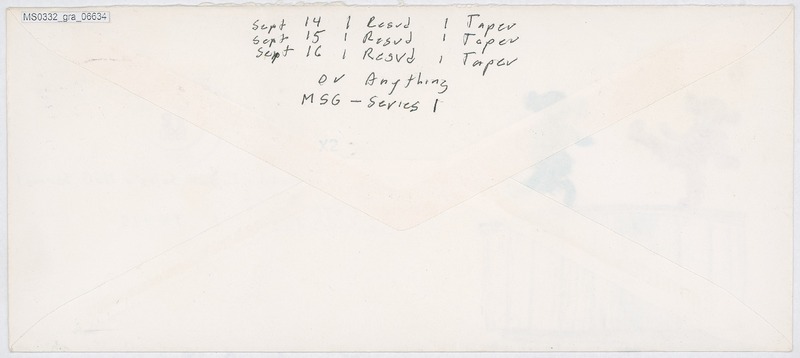 MS0332_gra_06634
Sept 14 1 Resvd 1 Taper
Sept 15 1 Resvd 1 Taper
Sept 16 1 Resvd 1 Taper
or Anything
MSG - Series 1